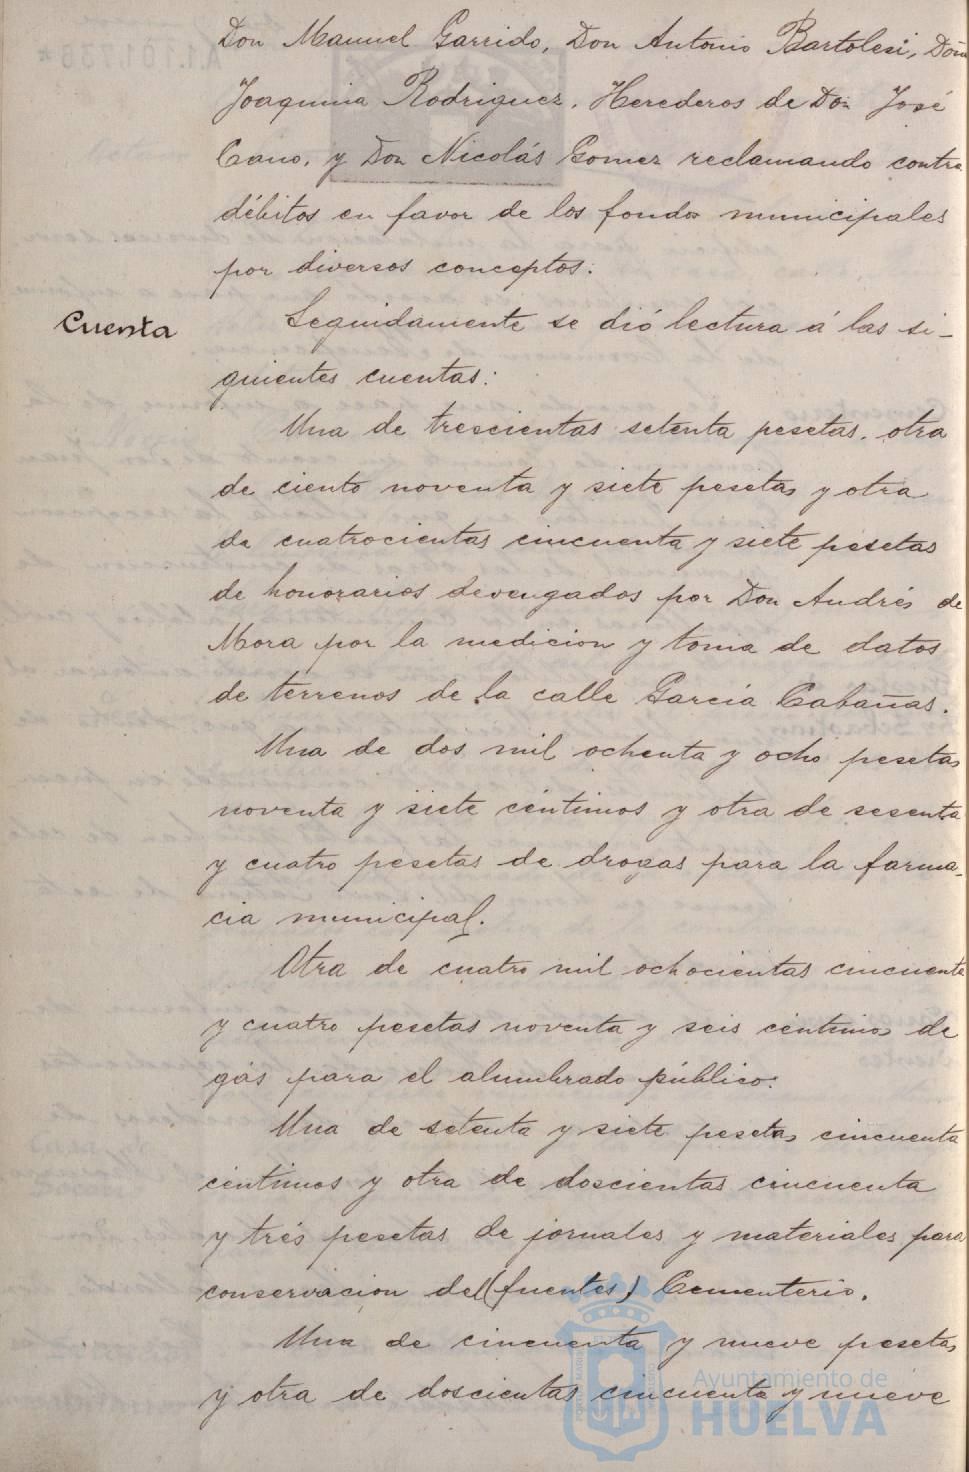 Don Manuel Garrido, Don Antonio Bartolesi, Doña
Joaquina Rodriguez, Herederos de Don José
Cano, y Don Nicolás Gomez reclamando contra
débitos en favor de los fondos municipales
por diversos conceptos.
Cuenta
Seguidamente se dió lectura á las si-
guientes cuentas:
Una de trescientas setenta pesetas, otra
de ciento noventa y siete pesetas y otra
de cuatrocientas cincuenta y siete pesetas
de honorarios devengados por Don Andrés de
Mora por la medicion y toma de datos
de terrenos de la calle Garcia Cabañas.
Una de dos mil ochenta y ocho pesetas
noventa y siete céntimos y otra de sesenta
y cuatro pesetas de drogas para la farma-
cia municipal.
Otra de cuatro mil ochocientas cincuenta
y cuatro pesetas noventa y seis céntimos de
gas para el alumbrado público.
Una de setenta y siete pesetas cincuenta
céntimos y otra de doscientas cincuenta
y trés pesetas de jornales y materiales para
conservacion del (fuentes) Cementerio.
Una de cincuenta y nueve pesetas
y otra de doscientas cincuenta y nueve
Ayuntamiento de
HUELVA